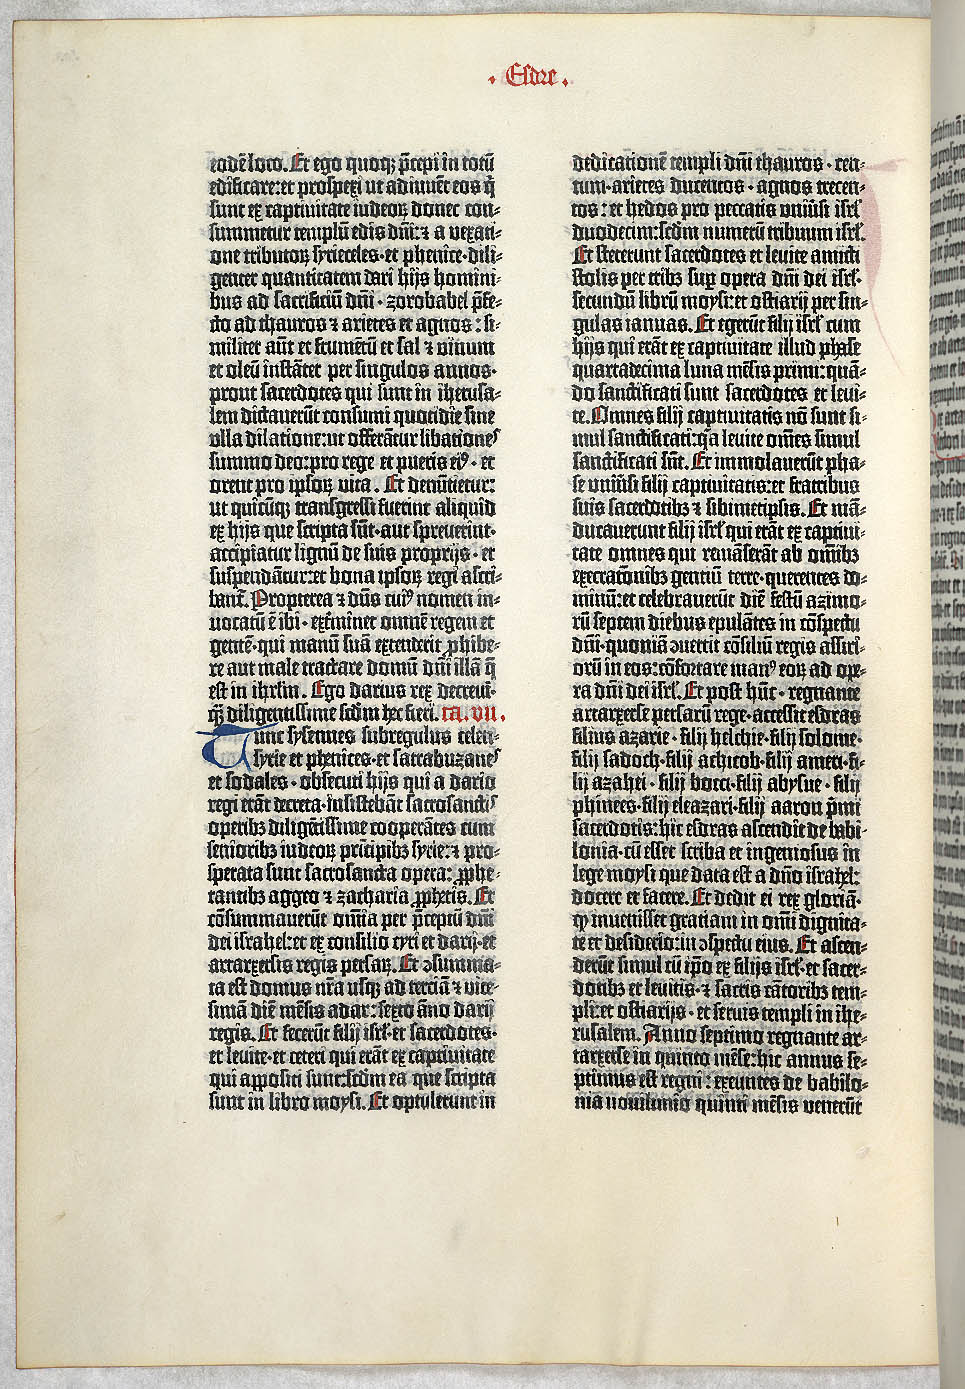 Esdre
eodē loco. Et ego quoq; p̄cepi in totū
edificare: et prospexi ut adiuuēt eos q̄
sunt ex captiuitate iudeoꝝ donec con-
summetur templū edis dn̄i: ⁊ a vexati-
one tributoꝝ syrieceles · et phenice · dili-
genter quantitatem dari hijs homini-
bus ad sacrificiū dn̄i · zorobabel p̄fe-
cto ad thauros ⁊ arietes et agnos : si-
militer aūt et frumētū et sal ⁊ vinum
et oleū instāter per singulos annos ·
prout sacerdotes qui sunt in iherusa-
lem dictauerūt consumi quotidie sine
vlla dilatione: ut offerātur libationes
summo deo: pro rege et pueris eiꝰ · et
orent pro ipsoꝝ vita . Et denūtietur:
ut quicūq; transgressi fuerint aliquid
ex hijs que scripta sūt · aut spreuerint ·
accipiatur lignū de suis proprijs · et
suspendātur: et bona ipsoꝝ regi ascri-
bant̄. Propterea ⁊ dūs cuiꝰ nomen in-
uocatū ē ibi · ext̄minet omnē regem et
gentē · qui manū suā extenderit ꝓhibe-
re aut male tractare domū dn̄i illā q̄
est in ihrl̄m . Ego darius rex decreui ·
q̄ȝ diligentissime scd̄m hec fieri. ca. vii.
Tunc sysennes subregulus celen-
syrie et phenices · et satrabuzanes
et sodales · obsecuti hijs qui a dario
regi erāt decreta · insistebāt sacrosanctis
operibȝ diligētissime cooperātes cum
senioribȝ iudeoꝝ pricipibȝ syrie: ⁊ pro-
sperata sunt sacrosancta opera: ꝓphe-
tantibȝ aggeo ⁊ zacharia ꝓphetis. Et
cōsummauerūt omīa per p̄ceptū dn̄i
dei israhel: et ex consilio cyri et darij · et
artarxersis regis persaꝝ. Et ꝯsumma-
ta est domus nr̄a usq; ad terciā ⁊ vice-
simā diē mēsis adar: sexto āno darij
regis. Et fecerūt filij isrl̄ · et sacerdotes ·
et leuite · et ceteri qui erāt ex captiuitate
qui appositi sunt: scd̄m ea que scripta
sunt in libro moysi. Et optulerunt in
dedicationē templi dn̄i thauros · cen-
tum · arietes ducentos · agnos trecen-
tos : et hedos pro peccatis vniūsi isrl̄
duodecim: scd̄m numerū tribuum isrl̄.
Et steterunt sacerdotes et leuite amicti
stolis per tribȝ suꝑ opera dn̄i dei isrl̄ ·
secundū librū moysi: et ostiarij per sin-
gulas ianuas. Et egerūt filij isrl̄ cum
hijs qui erāt ex captiuitate illud phase
quartadecima luna mēsis primi: quā-
do sanctificati sunt sacerdotes et leui-
te. Omnes filij captiuitatis nō sunt si-
mul sanctificati: q̄a leuite om̄es simul
sanctificati sūt. Et immolauerūt pha-
se vniūsi filij captiuitatis: et fratribus
suis sacerdotibȝ ⁊ sibimetipsis. Et mā-
ducauerunt filij isrl̄ qui erāt ex captiui-
tate omnes qui remāserāt ab om̄ibȝ
execratōnibȝ gentiū terre · querentes do-
minū: et celebrauerūt diē festū azimo-
rū septem diebus epulātes in cōspectu
dn̄i · quoniā ꝯuertit cōsiliū regis assiri-
orū in eos: cōfortare manꝰ eoꝝ ad ope-
ra dn̄i dei isrl̄. Et post hūc · regnante
artarxerse persarū rege · accessit esdras
filius azarie · filij helchie · filij solome ·
filij sadoch · filij achitob · filij ameri · fi-
lij azahei · filij bocci · filij abysue · filij
phinees · filij eleazari · filij aaron p̄mi
sacerdotis: hic esdras ascendit de babi-
lonia · cū esset scriba et ingeniosus in
lege moysi que data est a dn̄o israhel:
docere et facere. Et dedit ei rex gloriā ·
qꝫ inuenisset gratiam in omī dignita-
te et desiderio: in ꝯspectu eius. Et ascen-
derūt simul cū ip̄o ex filijs isrl̄ · et sacer-
dotibȝ et leuitis · ⁊ sacris cātoribȝ tem-
pli: et ostiarijs · et seruis templi in ihe-
rusalem. Anno septimo regnante ar-
tarxerse in quinto mēse: hic annus se-
ptimus est regni: exeuntes de babilo-
nia nouilunio quinti mēsis venerūt